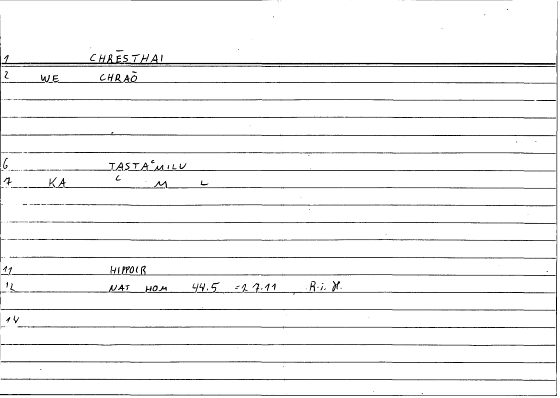 1 CHRĒSTHAI
2 WE CHRAŌ
6 TASTAᶜMILU
7 KA C M L
11 HIPPOCR
12 NAT HOM 44.5 =27.11 R.i.H.
14